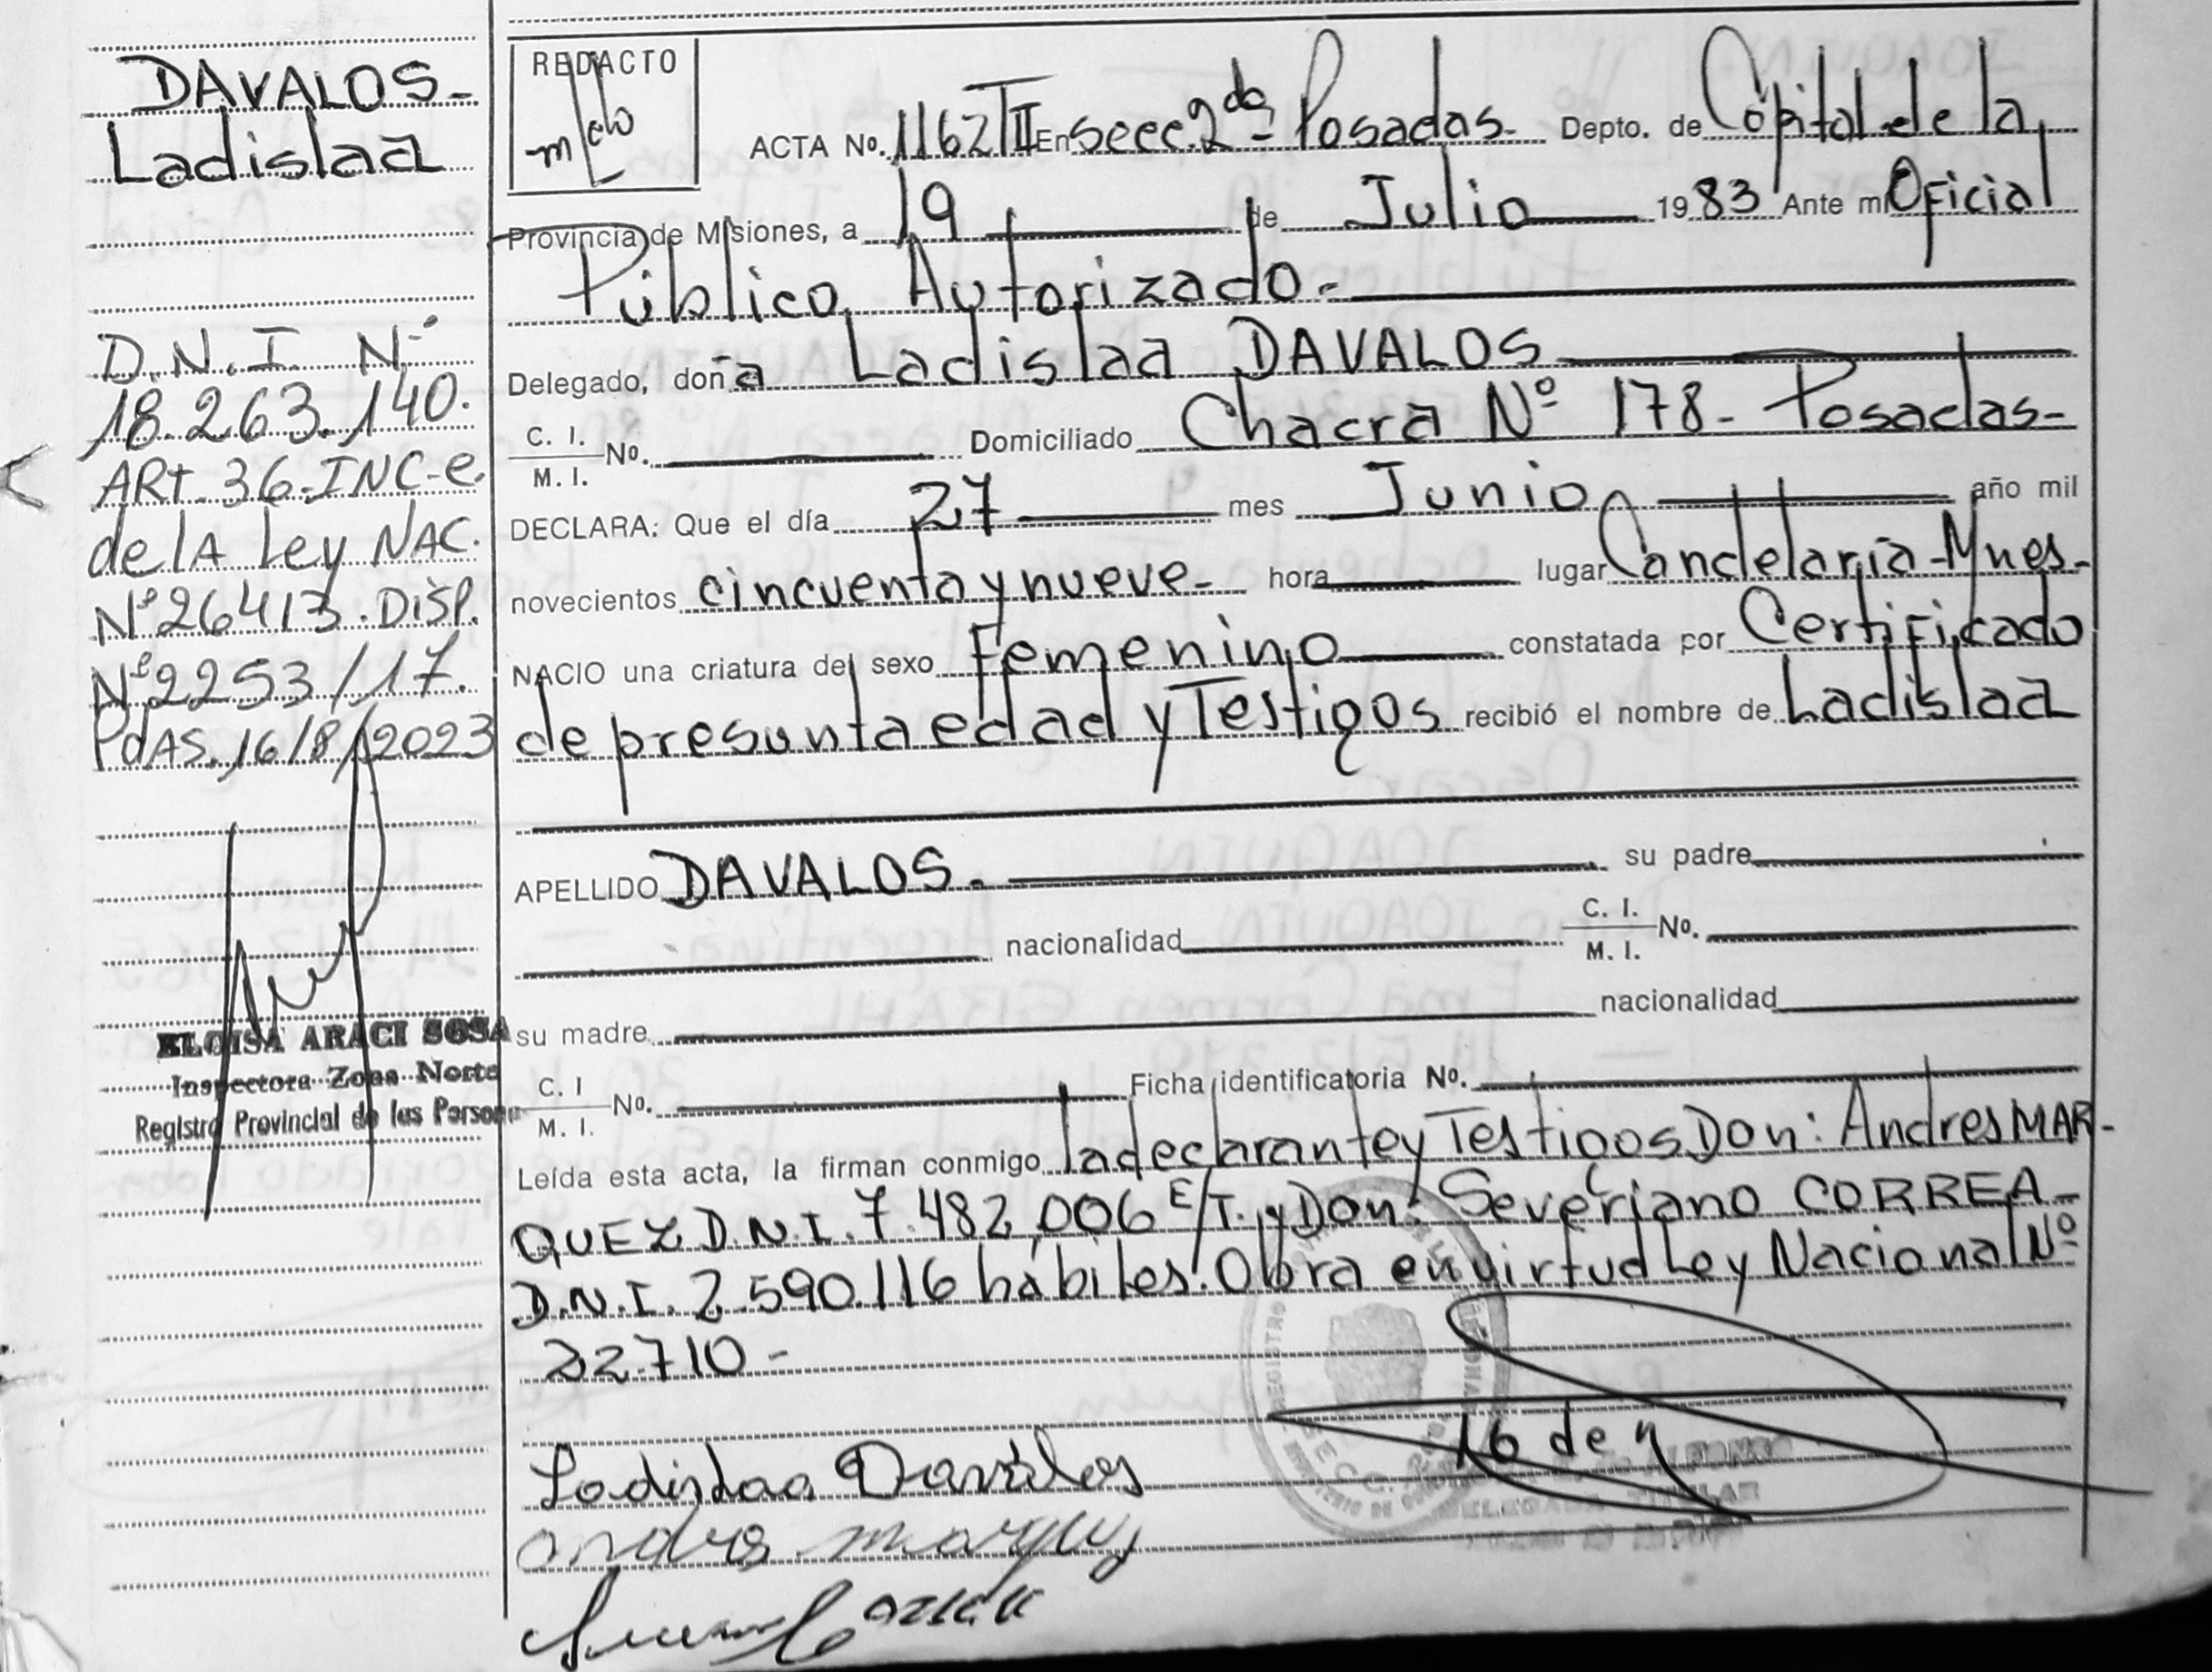 DAVALOS-
Ladislaa
D.N.I. Nº
18.263.140.
ARt. 36-INC-e.
de lA Ley NAC.
Nº 26413. DISP.
Nº 2253/17.
PdAS, 16/8/2023
ELOISA ARACI SOSA
Inspectora Zona Norte
Registro Provincial de las Persona
REDACTO
ACTA No. 1162/TII En secc. 2da- Posadas- Depto. de Capital de la
Provincia de Misiones, a 19 de Julio 1983 Ante mi Oficial
Público Autorizado.-
Delegado, doña Ladislaa DAVALOS
C. I.
M. I. No. Domiciliado Chacra Nº 178- Posadas-
DECLARA: Que el día 27 mes Junio año mil
novecientos cincuenta y nueve- hora lugar Candelaria-Mnes-
NACIO una criatura del sexo Femenino constatada por Certificado
de presunta edad y Testigos recibió el nombre de Ladislaa
APELLIDO DAVALOS.- su padre
nacionalidad C. I.
M. I. No.
su madre nacionalidad
C. I
M. I. No. Ficha identificatoria No.
Leída esta acta, la firman conmigo la declarante y Testigos Don: Andres MAR-
QUEZ D.N.I. 7.482,006 E/T. y Don: Severiano CORREA-
D.N.I. 2.590.116 hábiles. Obra en virtud Ley Nacional Nº
22.710-
Ladislaa Davalos
DELEGADA TITULAR